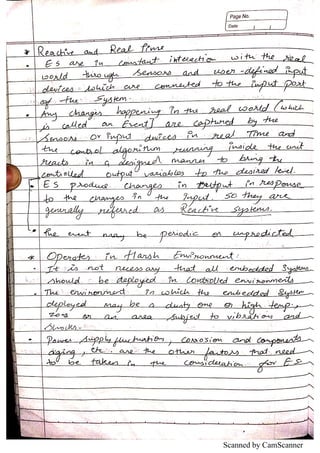 Page No.
Date
* Reactive and Real Time
• ES are in constant interaction with the real
world through sensors and user-defined input
devices which are connected to the input port
of the system.
• Any changes happening in the real world (which
is called an Event) are captured by the
sensors or input devices in real Time and
the control algorithm running inside the unit
reacts in a designed manner to bring the
controlled output variables to the desired level.
• ES produce changes in output in response
to the changes in the input. So they are
generally referred as Reactive Systems.
The event may be periodic or unpredicted
* Operates in Harsh Environment:
• It is not necessary that all embedded Systems
should be deployed in controlled environments
• The environment in which the embedded System
deployed may be a dusty one or high temp.,
zone or an area subject to vibrations and
Shocks.
• Power supply fluctuation, corrosion and components
aging, etc. are the other factors that need
to be taken in the consideration for ES
Scanned by CamScanner